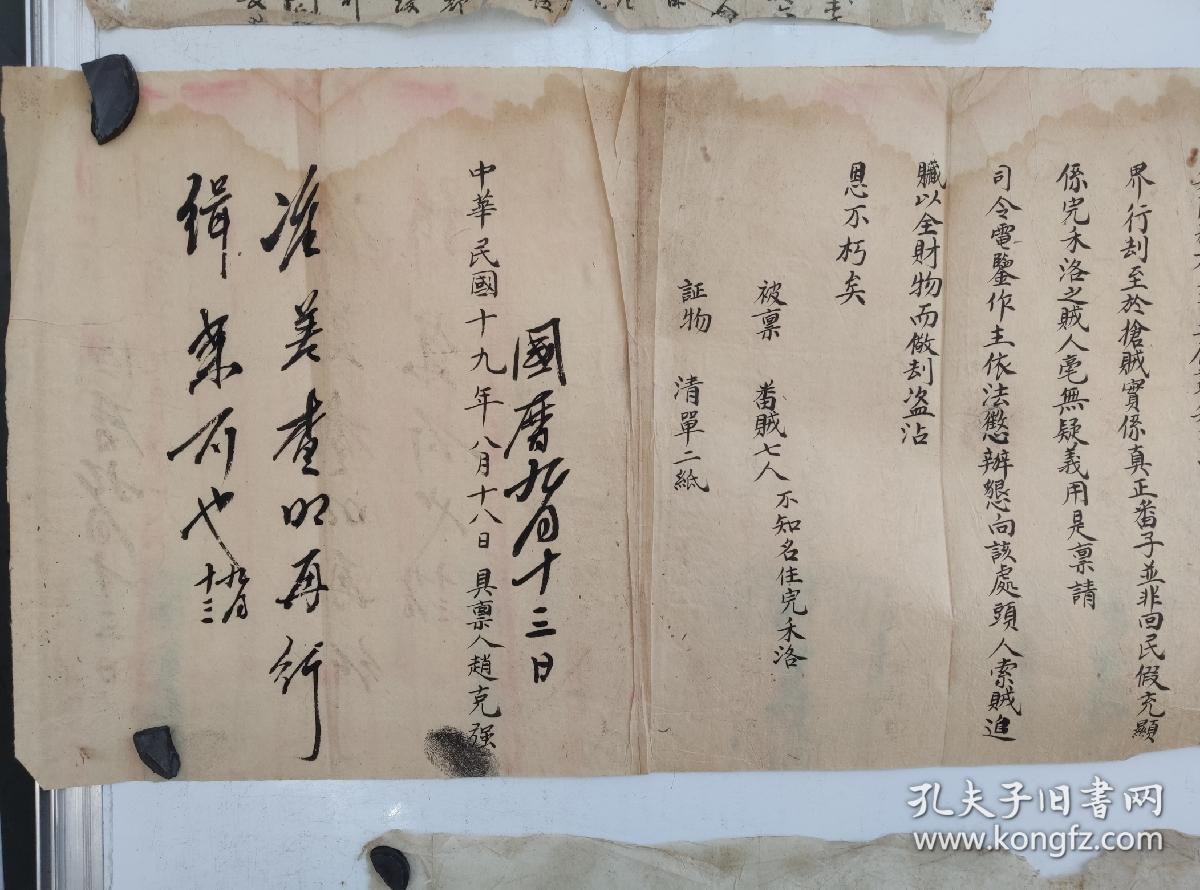 界行刦至於搶賊實係真正番子並非回民假充顯
係完禾洛之賊人毫無疑義用是禀請
司令電鑒作主依法懲辦懇向該處頭人索賊追
贓以全財物而儆刦盜沾
恩不朽矣
被禀 番賊七人 不知名住完禾洛
証物 清單二紙
國曆九月十三日
中華民國十九年八月十八日 具禀人趙克强
准差查明再行
緝案可也
九月
十三
孔夫子旧书网
www.kongfz.com